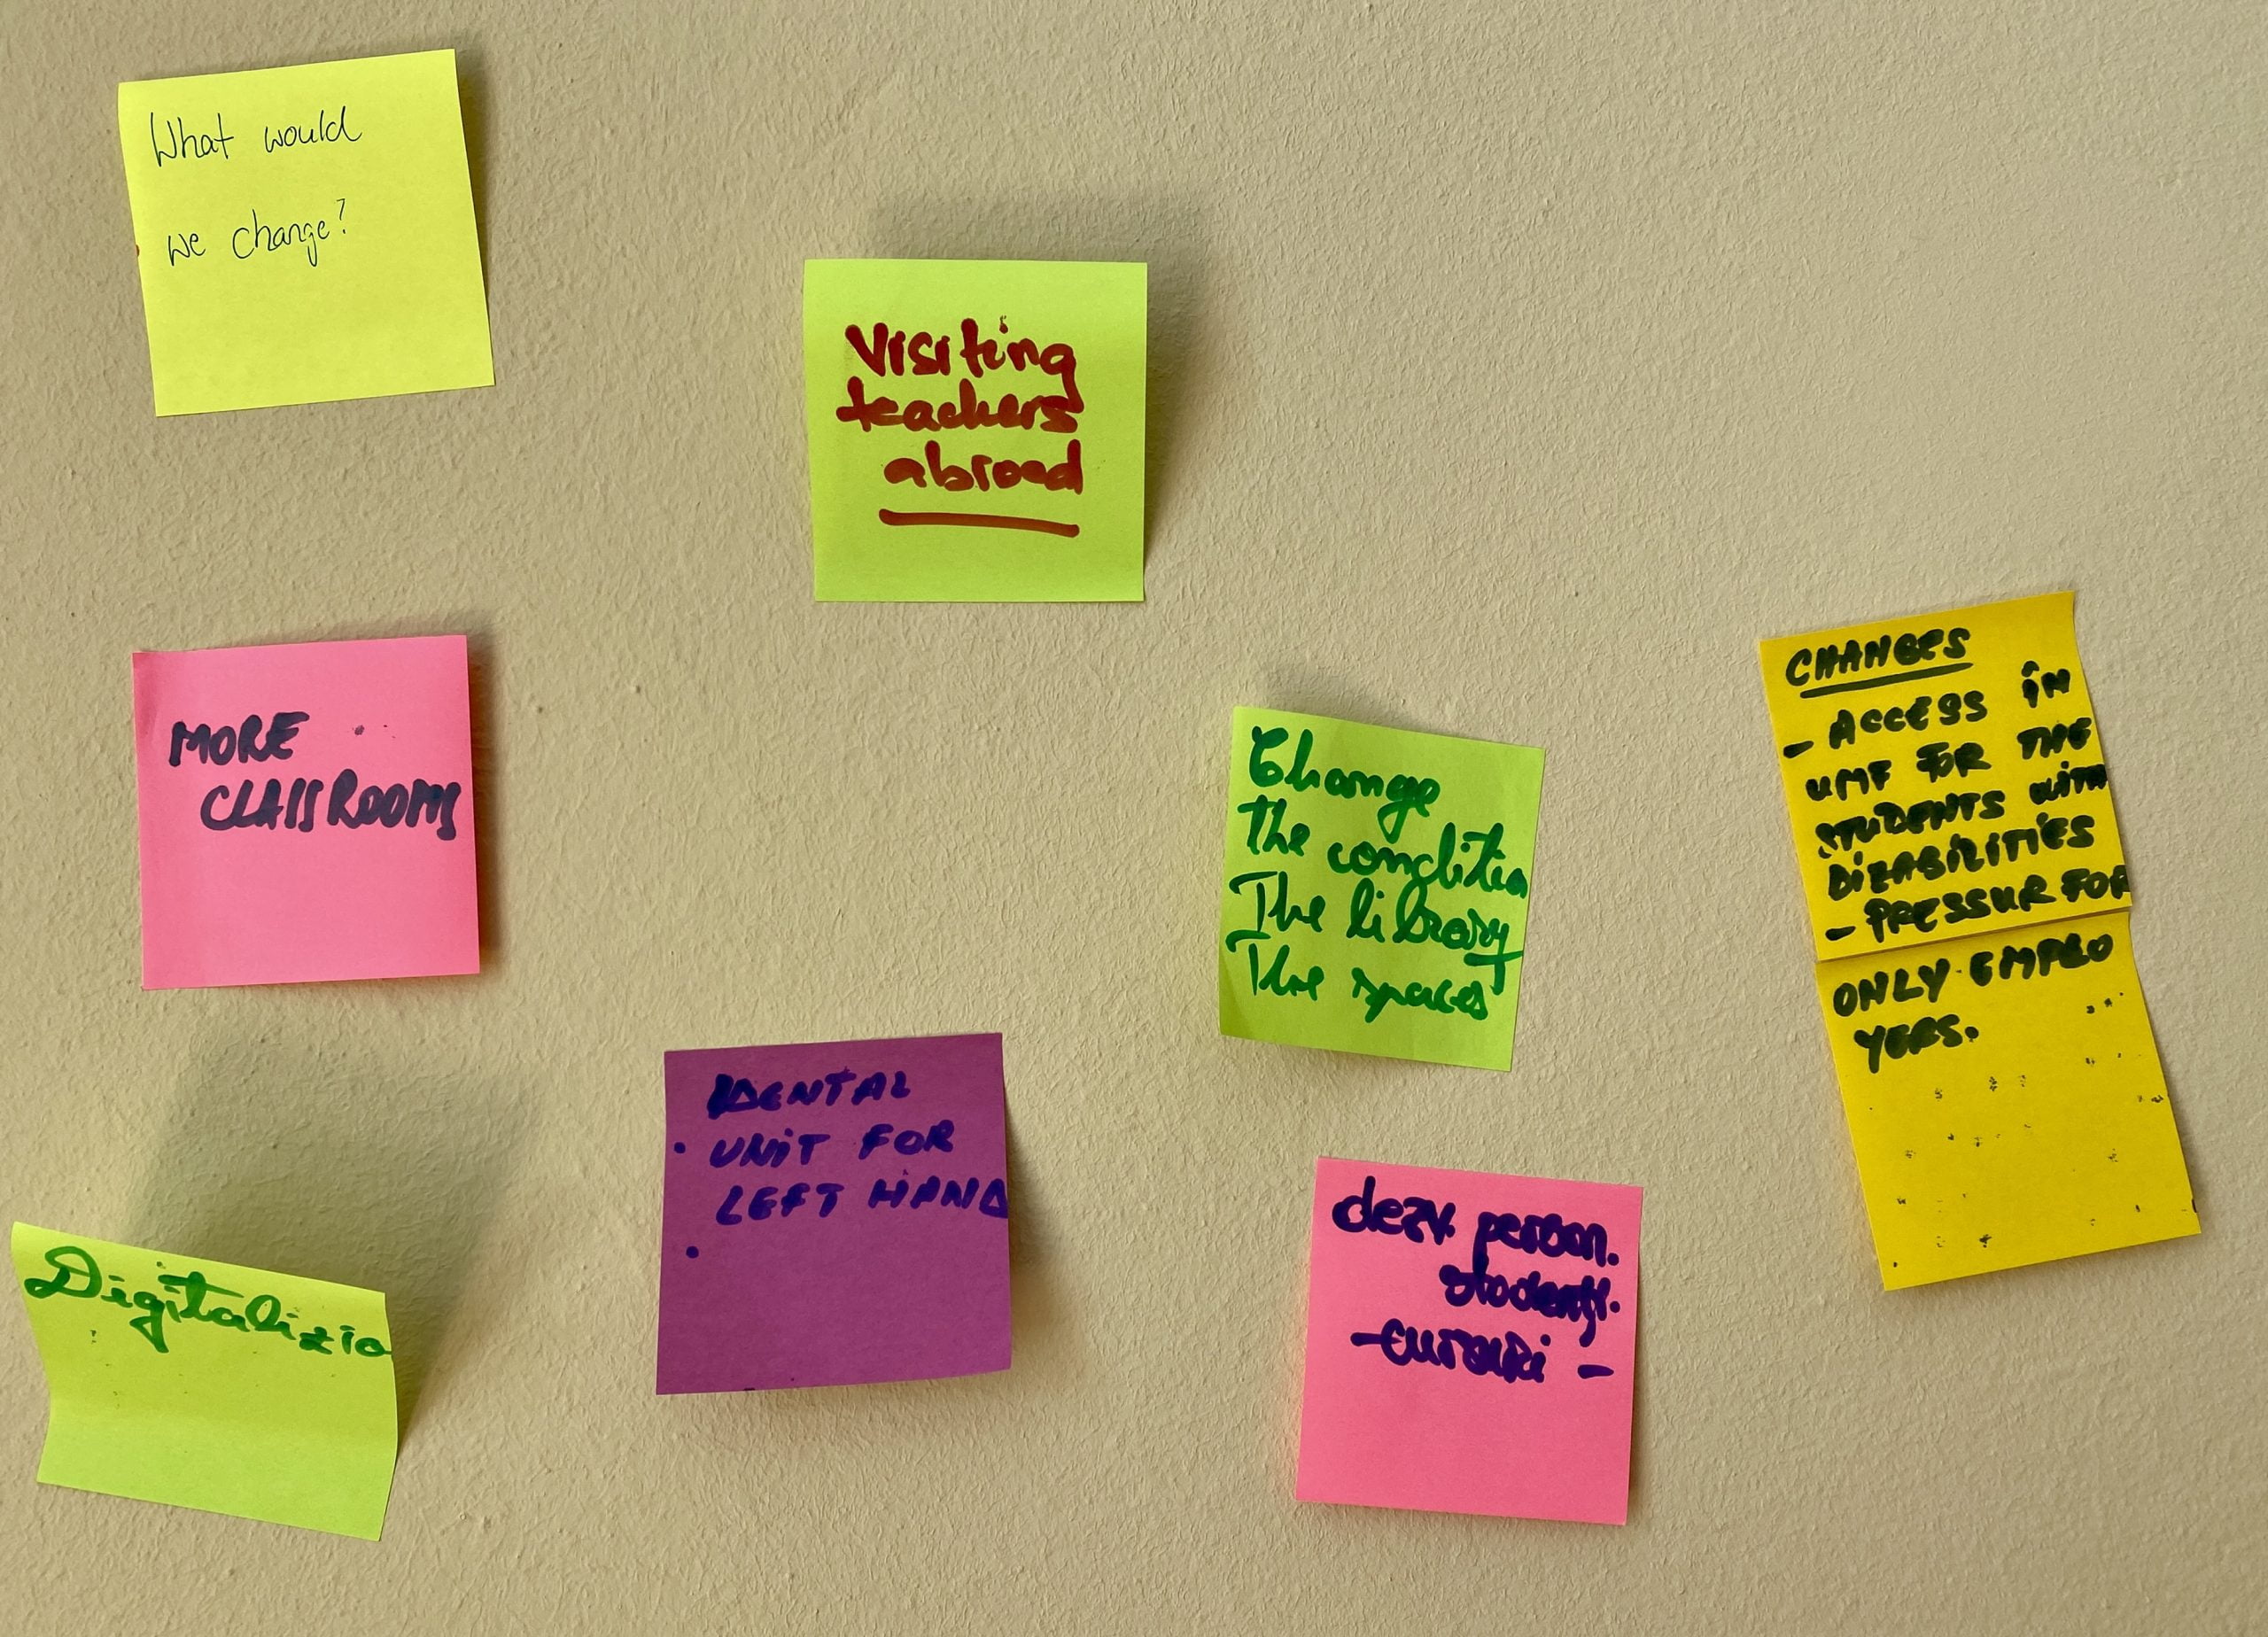 What would
we change?
Visiting
teachers
abroad
MORE
CLASSROOMS
Change
the condition
The library
The spaces
CHANGES
- ACCESS ÎN
UMF FOR THE
STUDENTS WITH
DIZABILITIES
- PRESSUR FOR
ONLY EMPLO
YERS.
DENTAL
• UNIT FOR
LEFT HAND
•
Digitalizia
dezv. person.
studenți.
- -